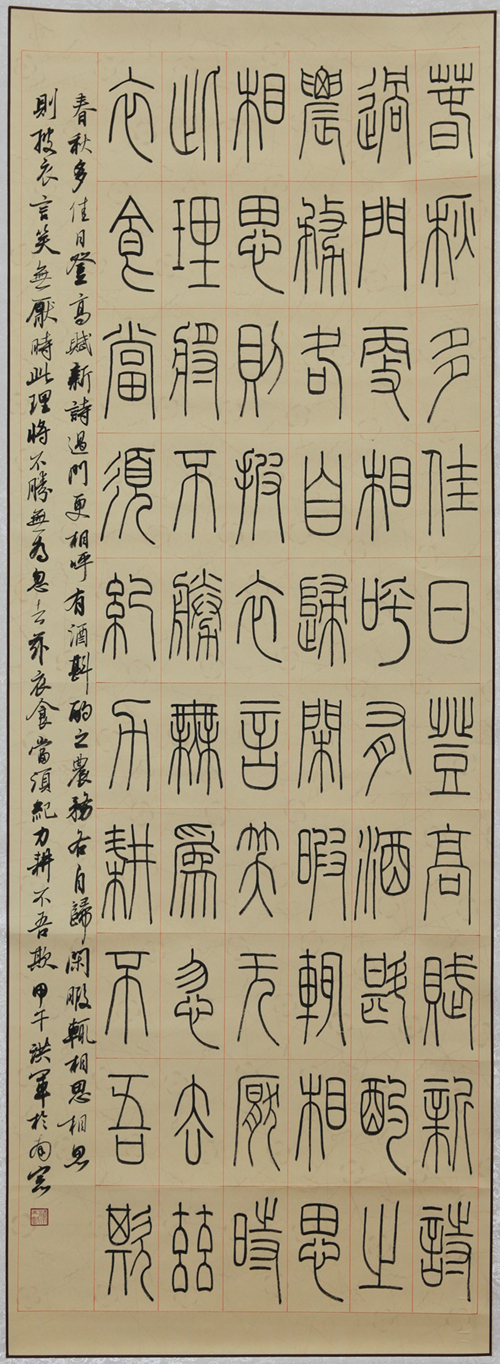 春秋多佳日登高賦新詩
過門更相呼有酒斟酌之
農務各自歸閑暇輒相思
相思則披衣言笑无厭時
此理將不勝無為忽去茲
衣食當須紀力耕不吾欺
春秋多佳日登高賦新詩過門更相呼有酒斟酌之農務各自歸閑暇輒相思相思
則披衣言笑無厭時此理將不勝無為忽去茲衣食當須紀力耕不吾欺甲午洪軍於南窓